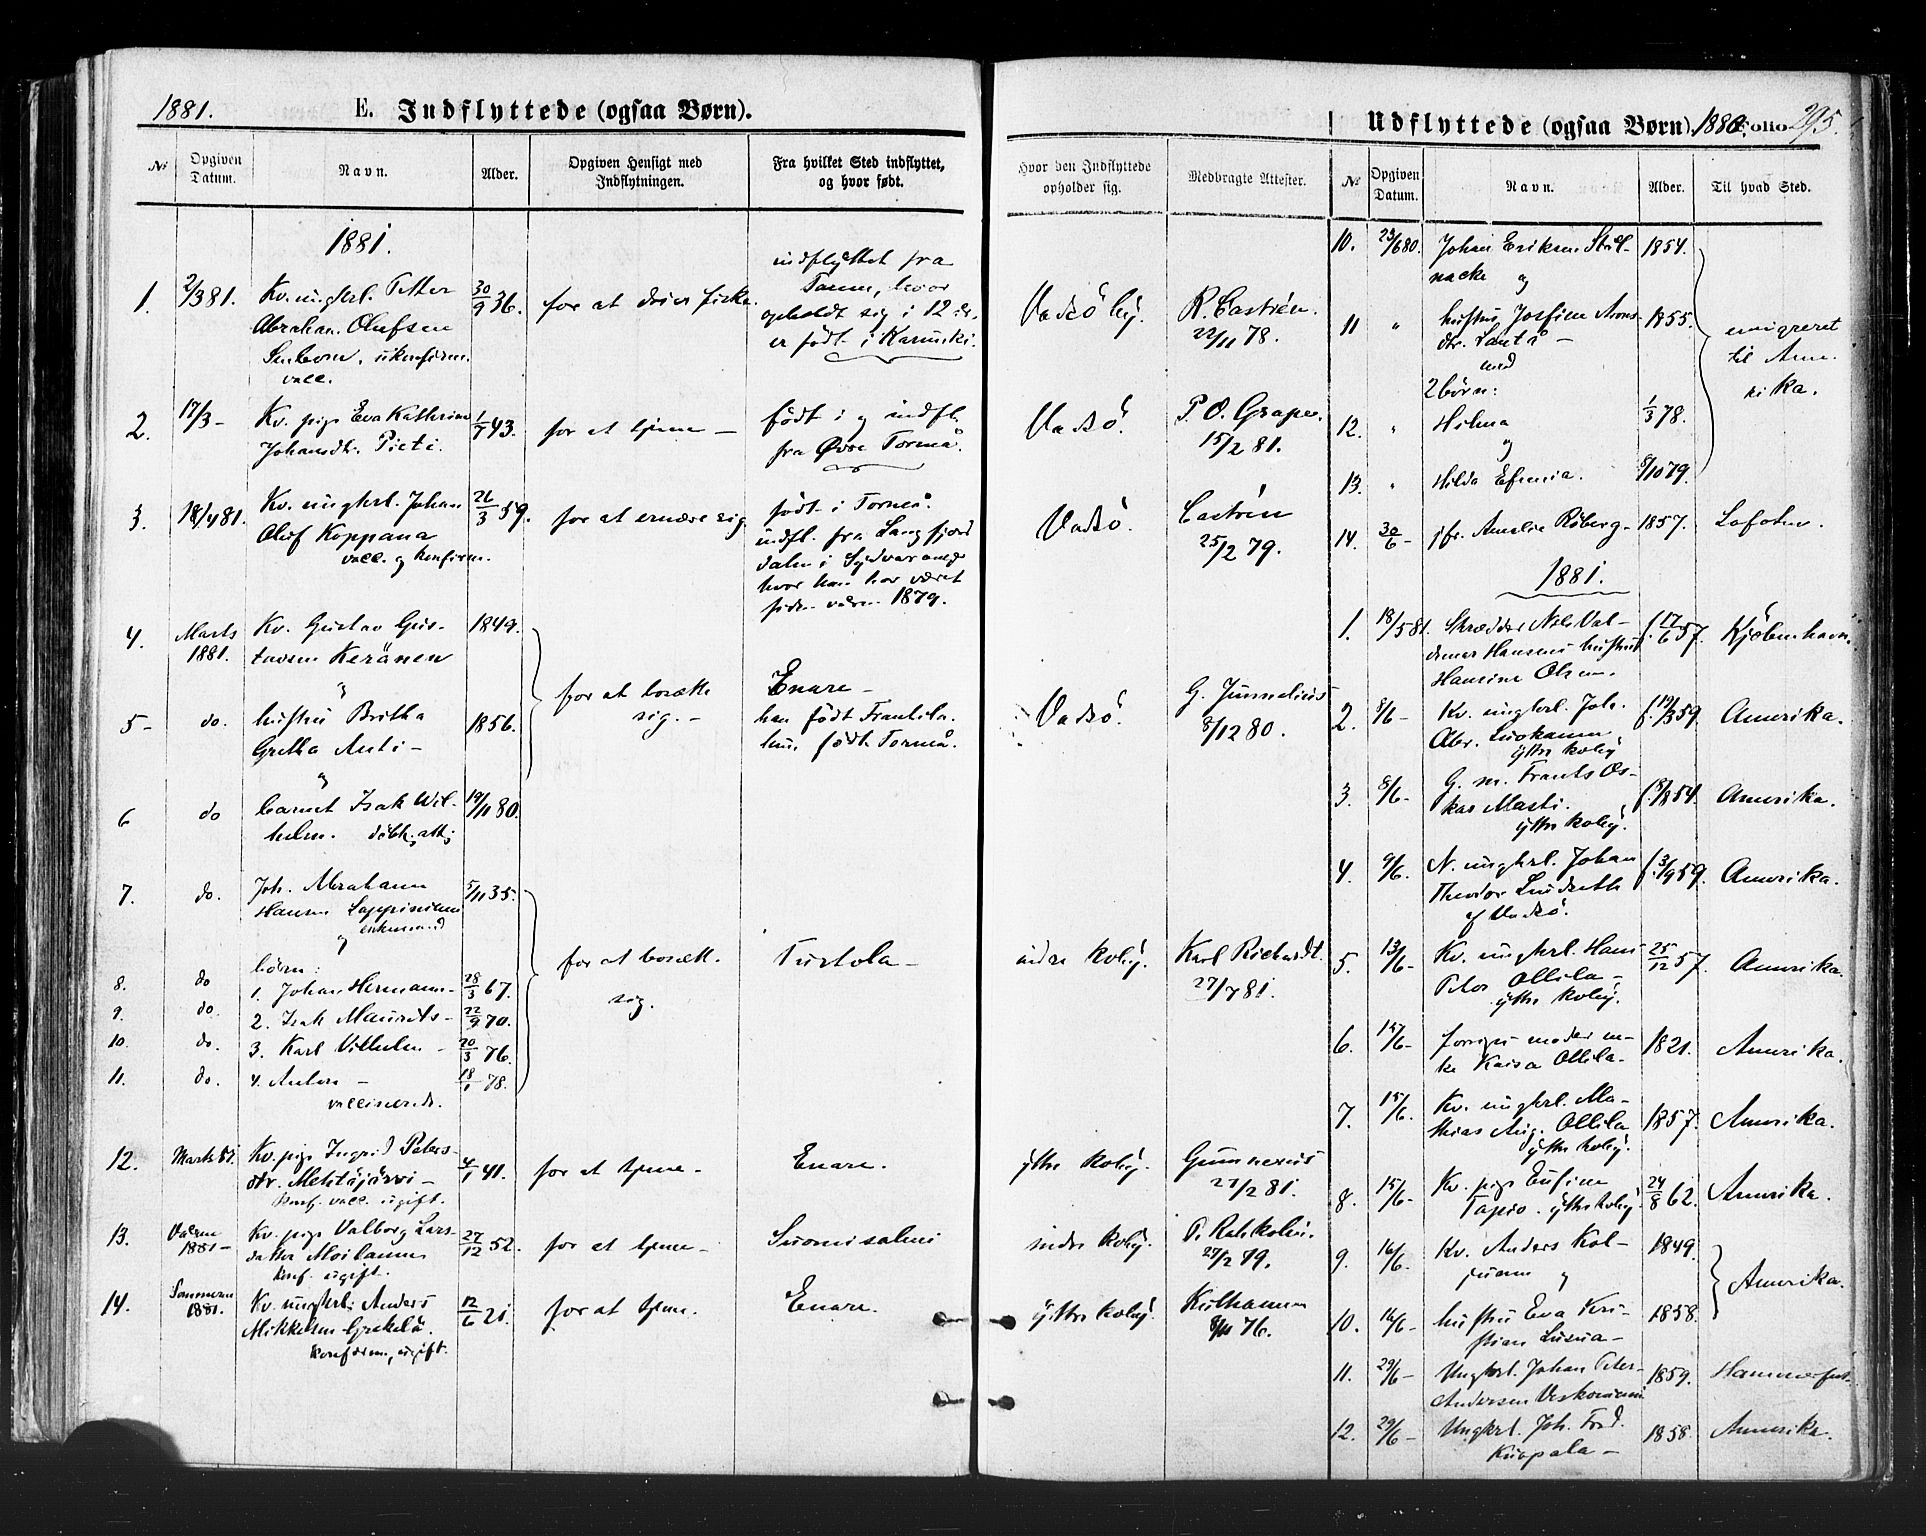 1881.
E. Indflyttede (ogsaa Børn).
№
Opgiven Datum.
Navn.
Alder.
Opgiven Hensigt med Indflytningen.
Fra hvilket Sted indflyttet, og hvor født.
Hvor den Indflyttede opholder sig.
Medbragte Attester.
1881.
1. 2/3 81. Kv. ungkrl. Petter 30/9 36.
Abraham Olufsen
ukonfirm.
vacc.
indflyttet fra
hvor
opholdt sig i 12 år,
er født i Karunki.
Vadsö by. R. Castrén.
22/11 78.
2. 17/3 – Kv. pige Eva Kathrina 43. for at tjene –
Johansdtr. Pieti.
født i og indfl.
fra Øvre Torneå.
Vadsö. P. O. Grape.
15/2 81.
3. 18/4 81. Kv. ungkrl. Johan 26/3 59. for at ernære sig.
Oluf Koppana
vacc. og konfirm.
født i Torneå.
indfl. fra Langfjord
dalen i Sydvaranger
hvor han har været
siden våren 1879.
Vadsö. Castrén
25/2 79.
4. Marts 1881. Kv. Gustav Gus- 1849.
tavsen Keränen
og
5 – do. hustru Britha 1856.
Gretha Anti –
og
for at bosætte
sig. –
Enare –
han født Frantsila.
hun født Torneå.
Vadsö. G. Junnelius
8/12 80.
6 do barnet Isak Wil- 19/11 80.
helm.
7. do. Joh. Abraham 5/11 35.
Hansen Lappinen
enkemand
og
børn:
8. do 1. Johan Hermann – 28/3 67.
9. do. 2. Isak Maurits – 22/9 70.
10. do. 3. Karl Vilhelm – 20/3 76.
11. do. 4. Anton – 18/1 78.
vaccinerede.
for at bosætte
sig.
Turtola –
indre Kvby. Karl Richardt.
27/7 81.
12. Marts 81. Kv. pige Ingrid Peters- 4/1 41. for at tjene – Enare.
dtr. Mehtäjärvi –
konf. vacc. ugift.
ytre Kvby. Gummerus
27/2 81.
13. Våren 1881 – Kv. pige Valborg Lars- 27/12 52. for at tjene – Suomisalmi
datter Moilanen
konf. ugift.
indre Kvby.
27/2 79.
14. Sommeren 1881. Kv. ungkrl. Anders 12/6 21. for at tjene. Enare.
Mikkelsen
konfirm., ugift.
ytre Kvby.
8/11 76.
Udflyttede (ogsaa Børn). 1880. Folio 295.
№
Opgiven Datum.
Navn.
Alder.
Til hvad Sted.
10. 23/6 80. Johan Eriksen Stål- 1854.
nacke og
11 " hustru Josefine Arons- 1855.
dtr.
med
2 børn:
12. " Hilma 1/3 78.
og
13. " Hilda Efemia. 8/10 79.
emigreret
til Ame-
rika.
14. 30/6 – jfr. Amalie Røberg – 1857. Lofoten.
1881.
1. 18/5 81. Skrædder Nils Val- f. 17/6 57. Kjöbenhavn.
demar Hansens hustru
Hansine Olsen.
2. 8/6 – Kv. ungkrl. Joh. f. 19/3 59. Amerika.
Abr.
ytre Kvby
3. 8/6 – G. m. Frants Os- f. 18/8 54. Amerika.
kar Masti.
ytre Kvby.
4. 9/6 – N. ungkrl. Johan f. 3/9 59. Amerika.
Theodor Lindseth
af Vadsö.
5. 13/6 – Kv. ungkrl. Hans 25/12 57. Amerika.
Peter Ollila –
ytre Kvby.
6. 15/6 – forriges moder en- 1821. Amerika.
ke Kaisa Ollila –
7. 15/6. Kv. ungkrl. Ma- 1857. Amerika.
thias Aug. Ollila
ytre Kvby.
8. 15/6 – Kv. pige Eufine 24/8 62. Amerika.
Tapio. ytre Kvby.
9. 16/6. Kv. Anders Kol- 1849.
juanen og
10. 16/6 – hustru Eva Kri- 1858.
stian Lusua –
Amerika.
11. 29/6 – Ungkrl. Johan Peter 1859. Hammerfest.
Andersen
12. 29/6 – Ungkrl. Joh. Fred. 1858. Amerika.
Kurpala –